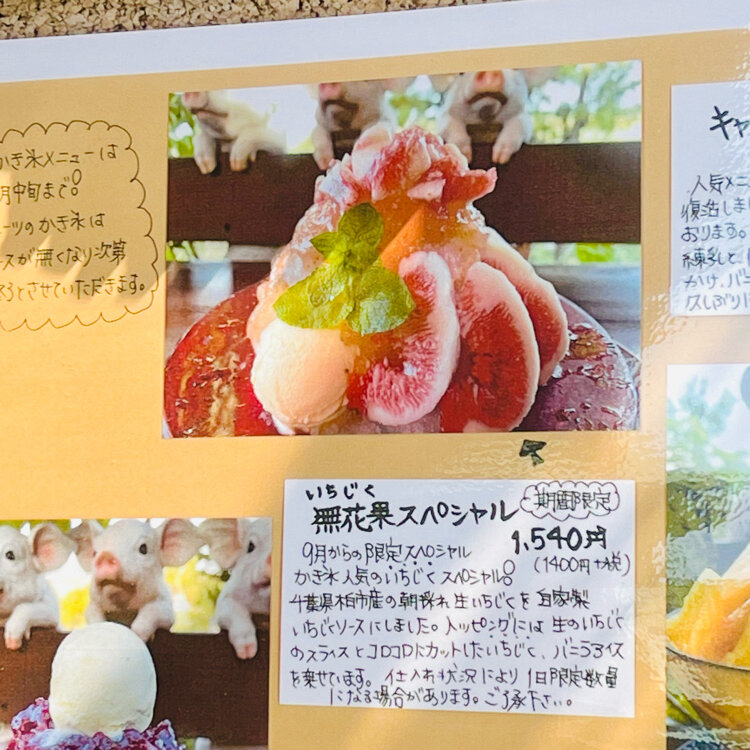 かき氷メニューは
月中旬まで。
ーツのかき氷は
ースが無くなり次第
とさせていただきます。
いちじく
無花果スペシャル
期間限定
1,540円
(1400円+税)
9月からの限定スペシャル
かき氷人気のいちじくスペシャル。
千葉県柏市産の朝採れ生いちじくを自家製
いちじくソースにしました。トッピングには生のいちじく
のスライスとコロコロにカットしたいちじく、バニラアイス
を乗せています。仕入れ状況により1日限定数量
になる場合があります。ご了承下さい。
キャ
人気メニ
復活しま
おります。
練乳と
かけ、バニ
久しぶり